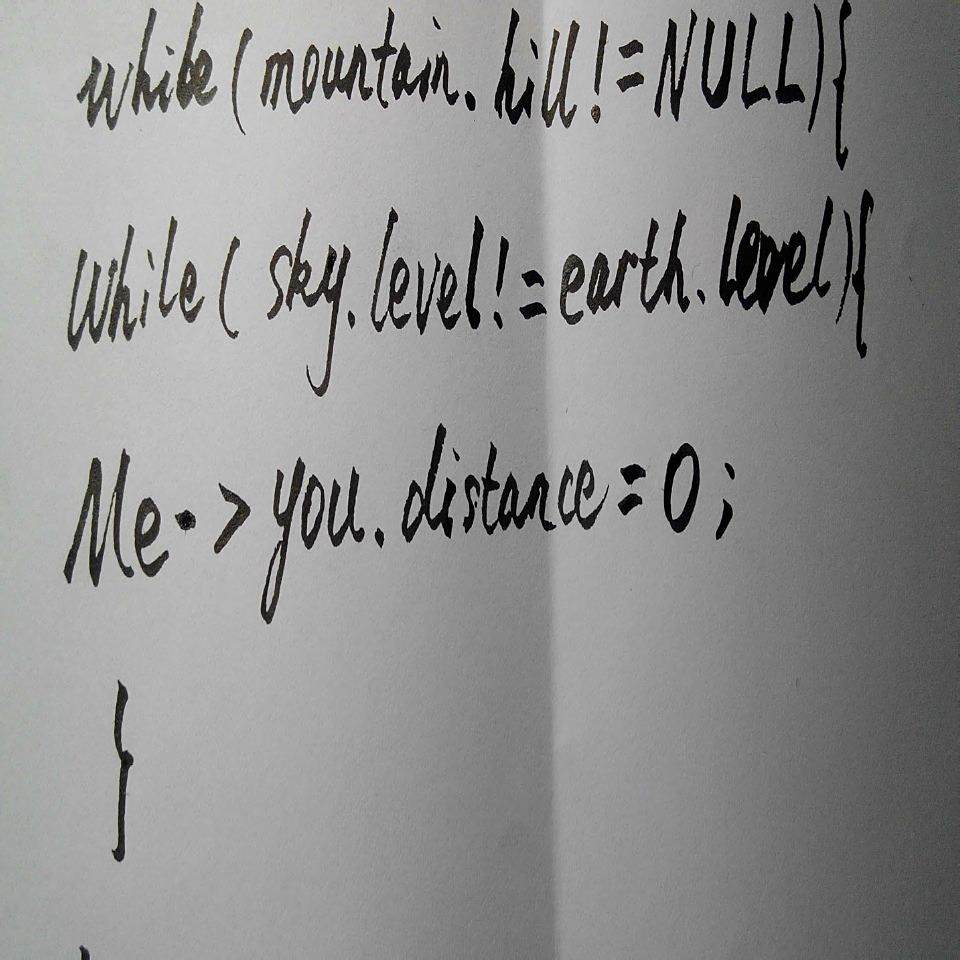 while(mountain.hill!=NULL){
while(sky.level!=earth.level){
Me->you.distance=0;
}